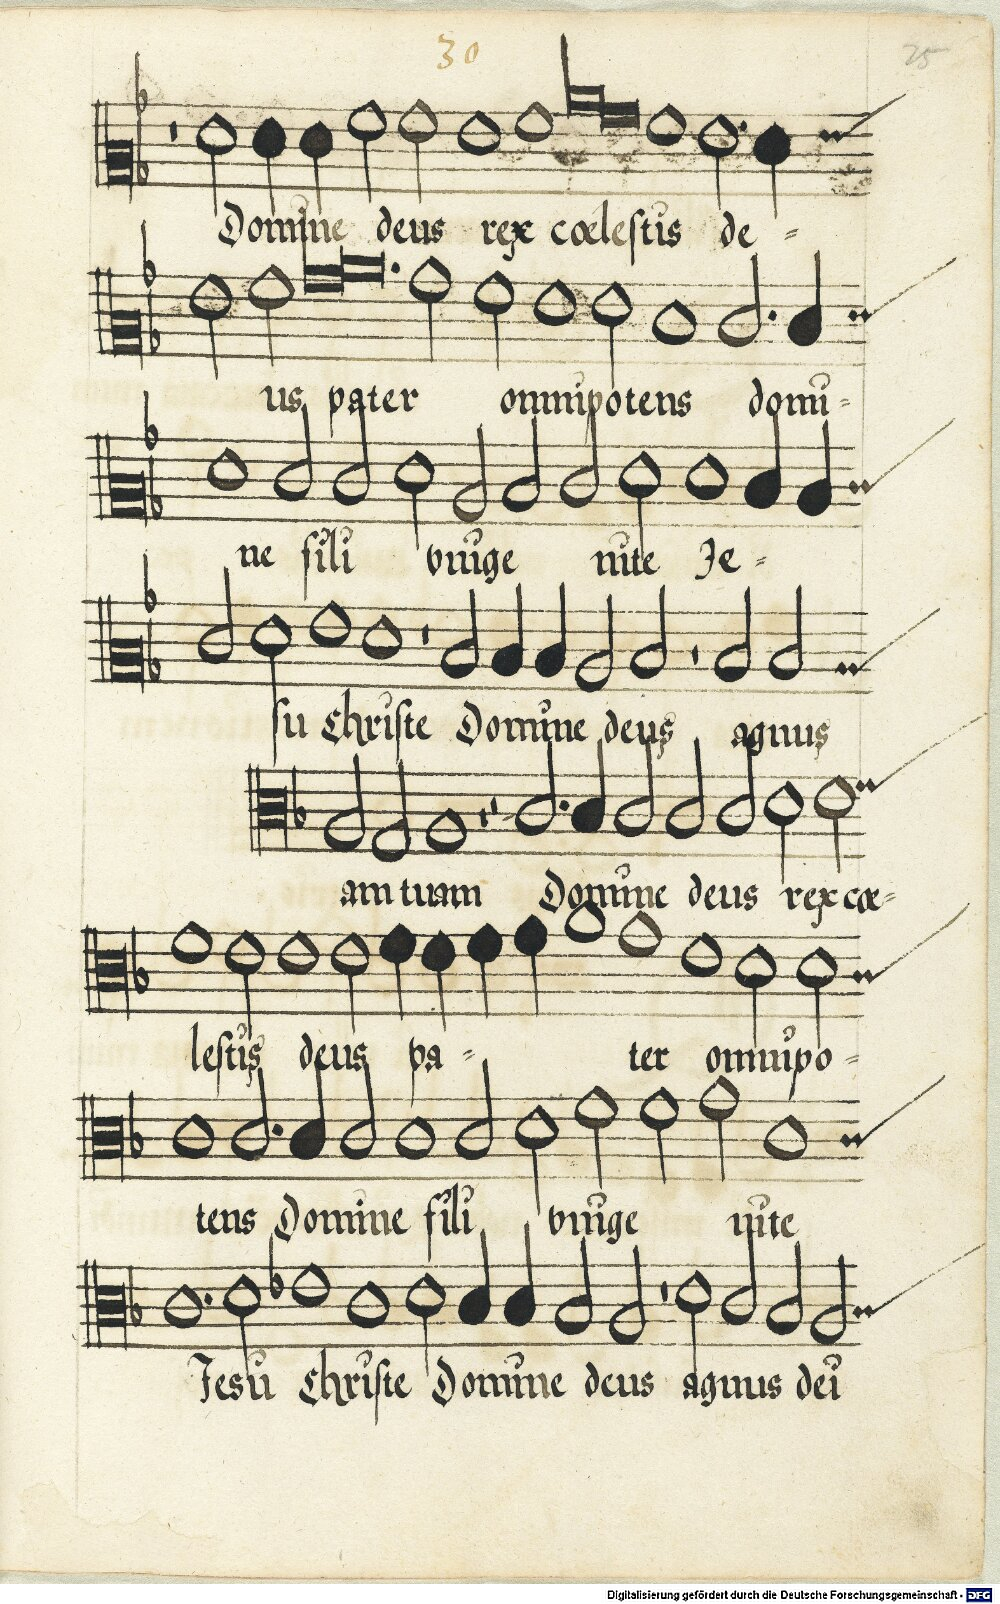 30
25
Domine deus rex cœlestis de-
us pater omnipotens domi-
ne fili vnige nite Je-
su Christe Domine deus agnus
am tuam Domine deus rex cœ-
lestis deus pa- ter omnipo-
tens Domine fili vnige nite
Jesu Christe Domine deus agnus dei
Digitalisierung gefördert durch die Deutsche Forschungsgemeinschaft - DFG